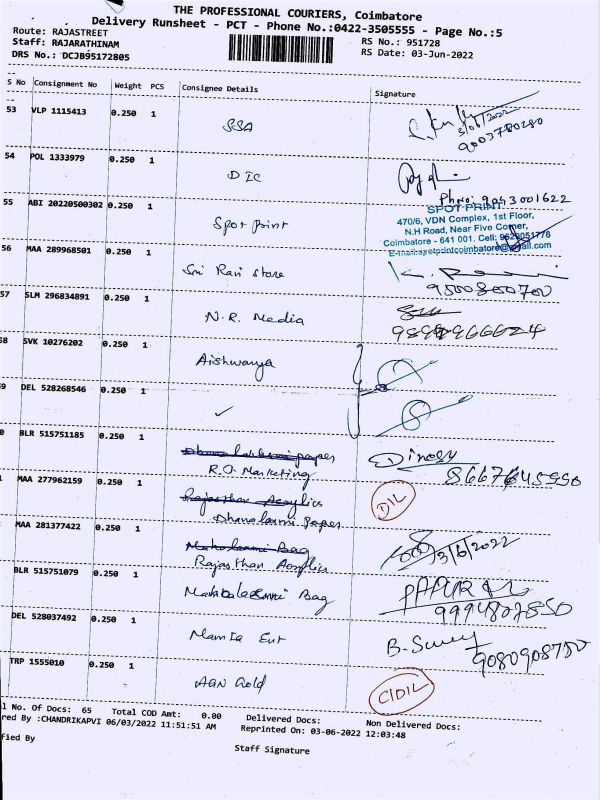 THE PROFESSIONAL COURIERS, Coimbatore
Delivery Runsheet - PCT - Phone No.:0422-3505555 - Page No.:5
Route: RAJASTREET
RS No.: 951728
Staff: RAJARATHINAM
RS Date: 03-Jun-2022
DRS No.: DCJB95172805
S No Consignment No Weight PCS Consignee Details Signature
53 VLP 1115413 0.250 1 SSA
3/06/2022
9003780280
54 POL 1333979 0.250 1 DIC
Ph no: 9043001622
55 ABI 20220500302 0.250 1 Spot Print
SPOT PRINT
470/6, VDN Complex, 1st Floor,
N.H Road, Near Five Corner,
Coimbatore - 641 001. Cell: 9629051776
E-mail:spotprintcoimbatore@gmail.com
56 MAA 289968501 0.250 1 Sri Ravi Store
9500800700
57 SLM 296834891 0.250 1 N.R. Media
58 SVK 10276202 0.250 1 Aishwarya
9 DEL 528268546 0.250 1 ✓
0 BLR 515751185 0.250 1 Dhana lakshmi papers
R.J. Marketing
Dinesh
8667645550
MAA 277962159 0.250 1 Rajasthan Acrylics
Dhana laxmi Papers
DIL
MAA 281377422 0.250 1 Mahalaxmi Bag
Rajasthan Acrylics
3/6/2022
BLR 515751079 0.250 1 Mahabalaxmi Bag
9994807850
DEL 528037492 0.250 1 Mamta Ent
B.
9080908750
TRP 1555010 0.250 1 AGN Gold
CIDIL
l No. Of Docs: 65 Total COD Amt: 0.00 Delivered Docs: Non Delivered Docs:
red By :CHANDRIKAPVI 06/03/2022 11:51:51 AM Reprinted On: 03-06-2022 12:03:48
fied By
Staff Signature